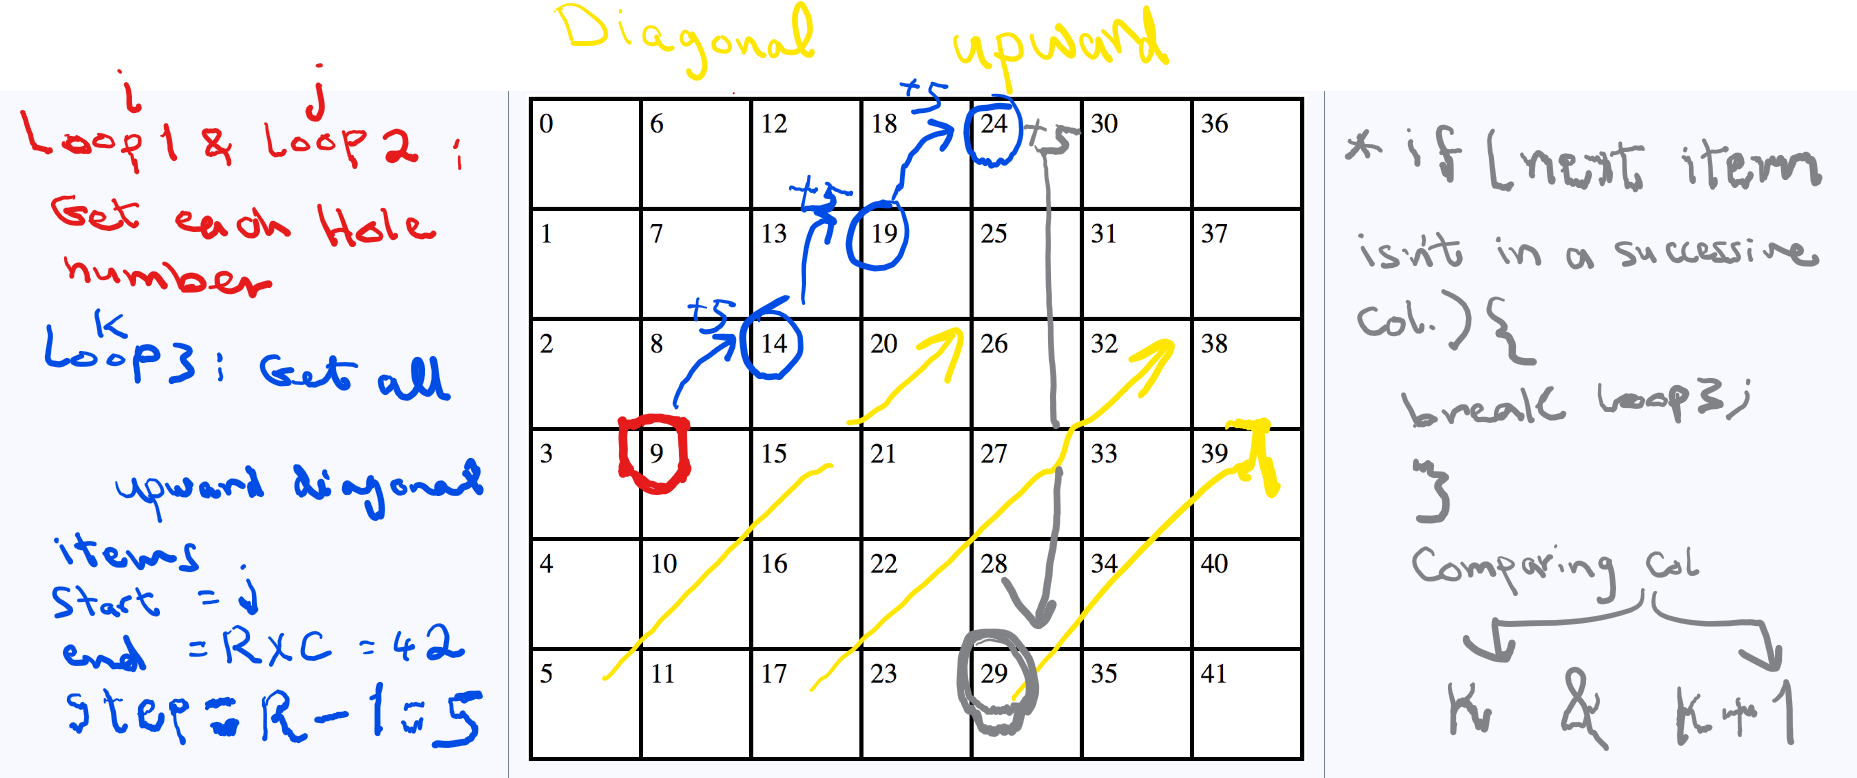 Diagonal upward
i j
Loop1 & Loop2 :
Get each Hole
number
K
Loop3 : Get all
upward diagonal
items
Start = j
end = RXC = 42
Step = R - 1 = 5
+5
0 6 12 18 24 +5 30 36
+5
1 7 13 19 25 31 37
+5
2 8 14 20 26 32 38
3 9 15 21 27 33 39
4 10 16 22 28 34 40
5 11 17 23 29 35 41
* if (next item
isn't in a successive
Col.) {
break Loop3;
}
Comparing Col
K & K+1